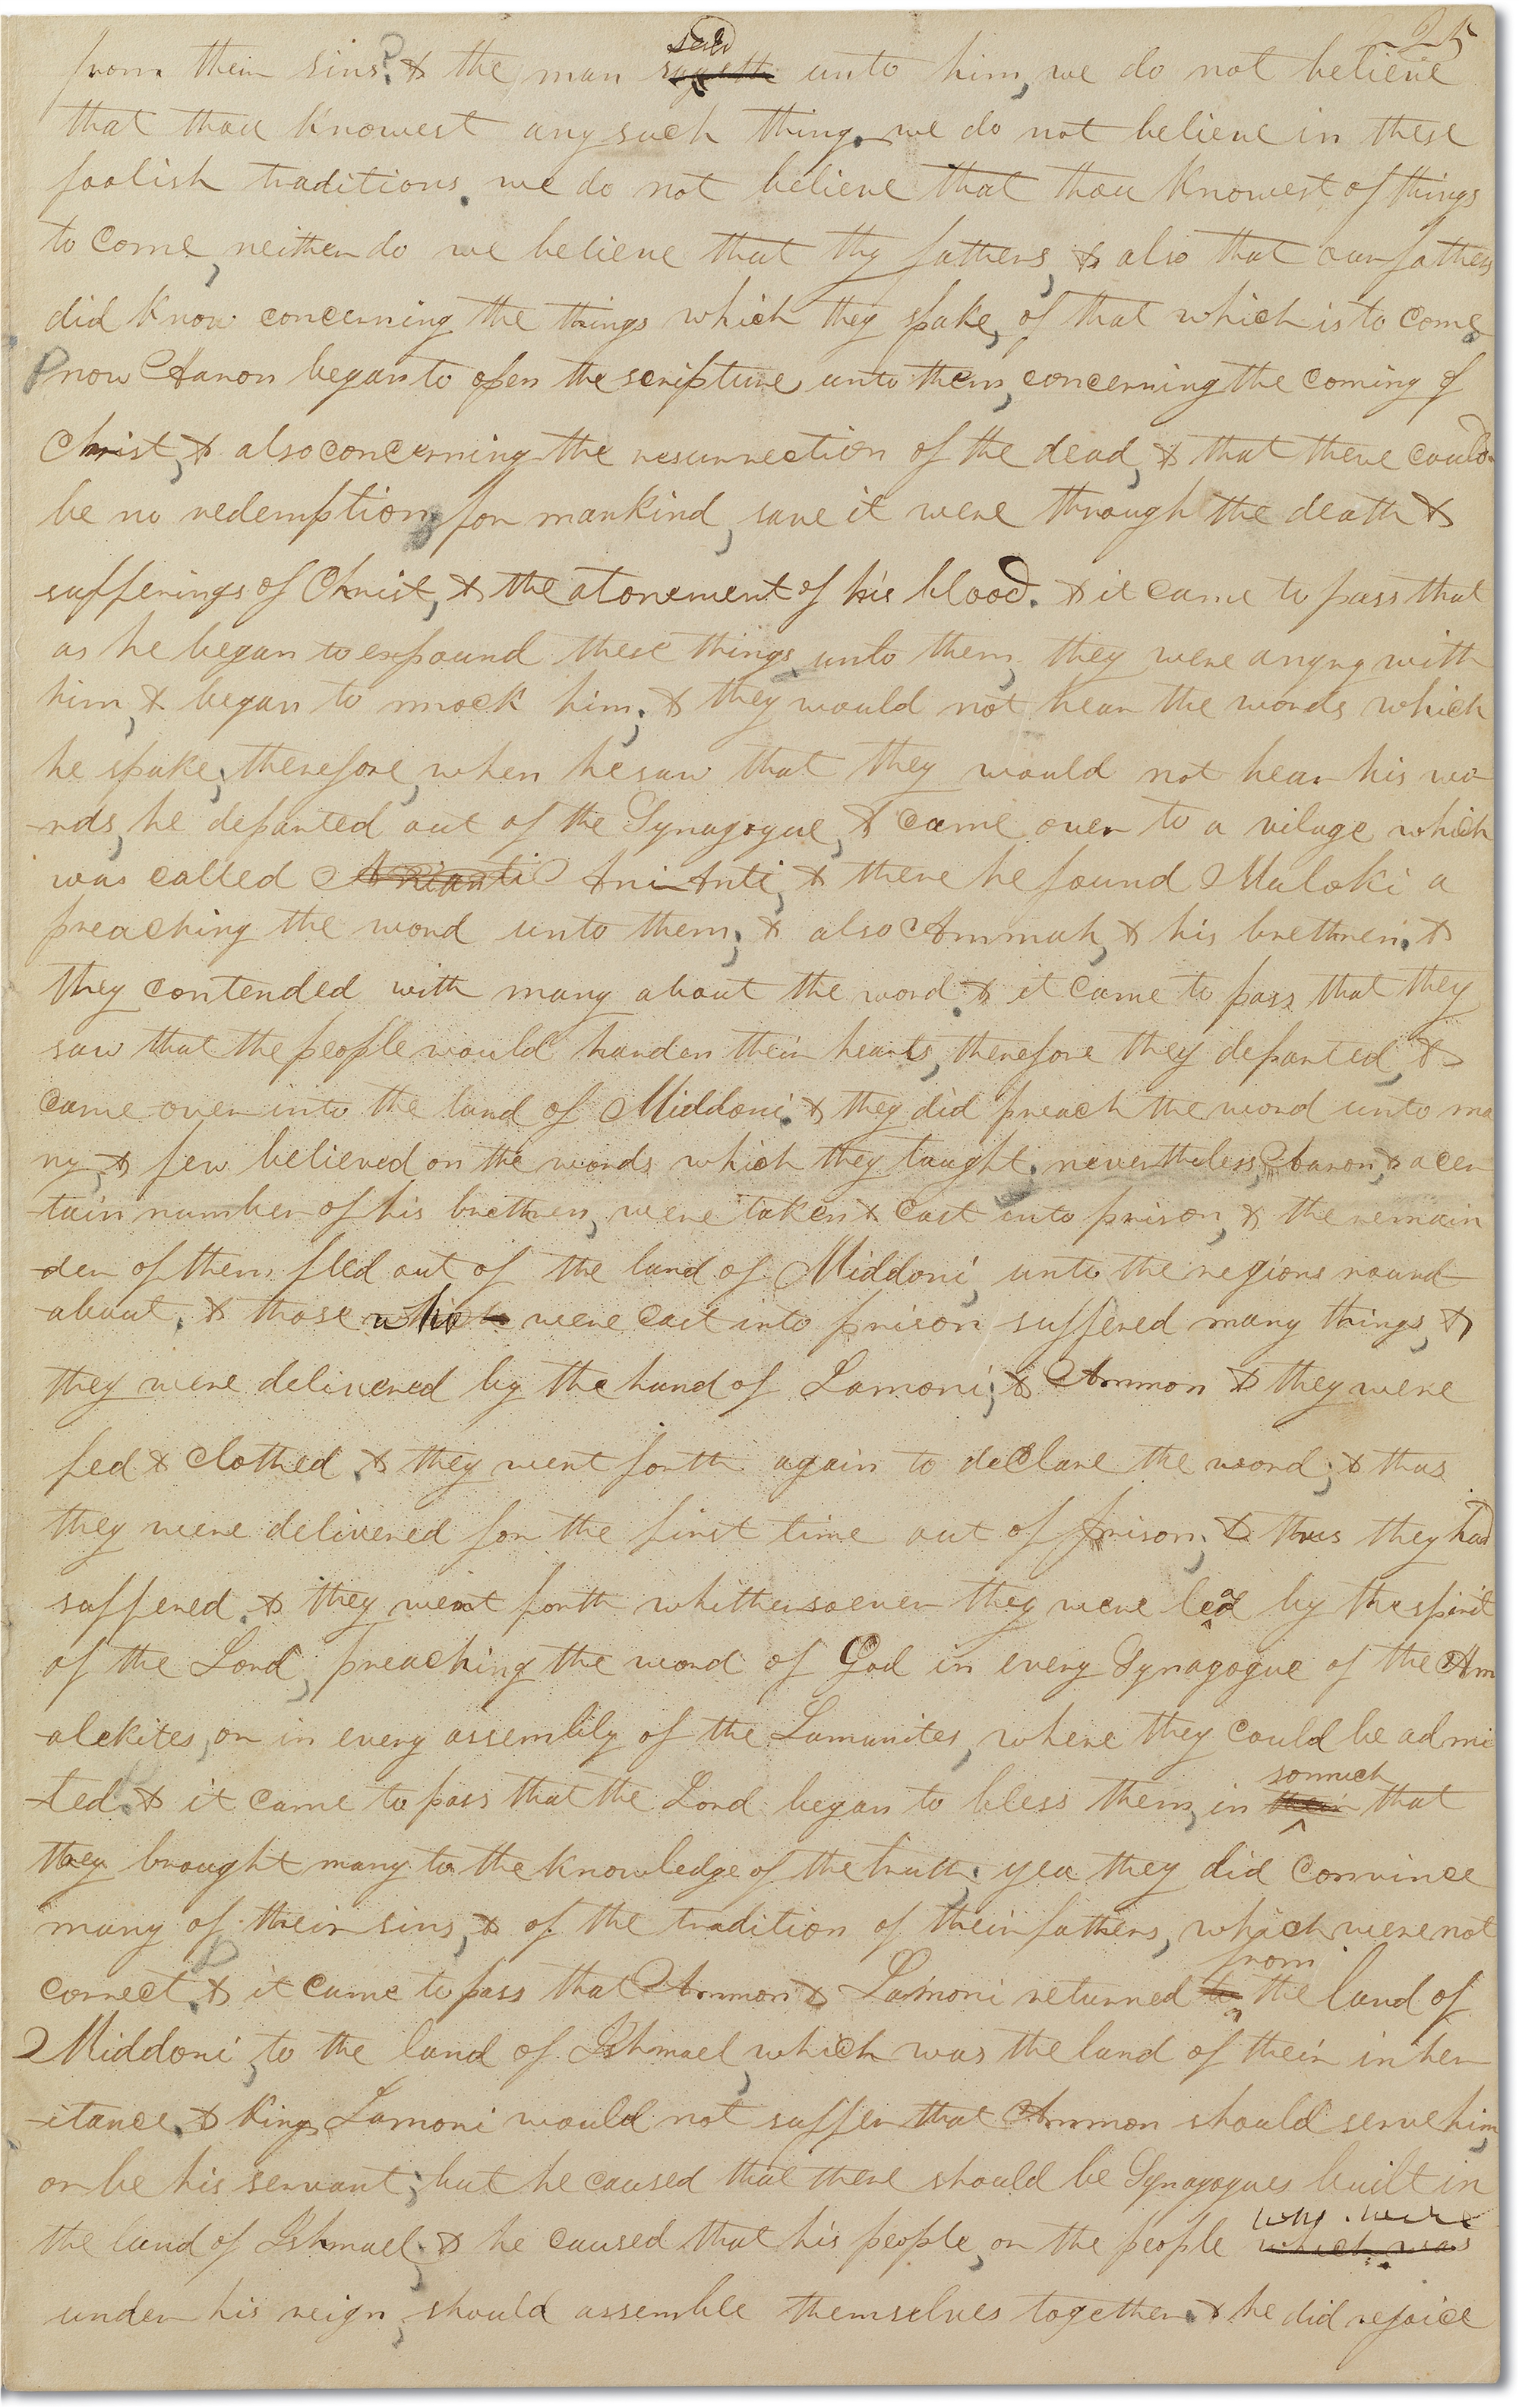 225
from their sins. & the man sayeth said unto him, we do not believe
that thou knowest any such thing. we do not believe in these
foolish traditions. we do not believe that thou knowest of things
to come, neither do we believe that thy fathers, & also that our fathers
did know concerning the things which they spake, of that which is to come
P now Aaron began to open the scriptures unto them, concerning the coming of
Christ, & also concerning the resurrection of the dead, & that there could
be no redemption, for mankind, save it were through the death &
sufferings of Christ, & the atonement of his blood. & it came to pass that
as he began to expound these things unto them, they were angry with
him, & began to mock him; & they would not hear the words which
he spake; therefore, when he saw that they would not hear his wo-
-rds, he departed out of the Synagogue, & came over to a vilage which
was called Anianti Ani-Anti, & there he found Muloki a
preaching the word unto them; & also Ammah, & his brethren. &
they contended with many about the word. & it came to pass that they
saw that the people would harden their hearts, therefore they departed, &
came over into the land of Middoni. & they did preach the word unto ma
ny, & few believed on the words which they taught. nevertheless, Aaron, & a cer
-tain number of his brethren, were taken & cast into prison, & the remain
-der of them fled out of the land of Middoni, unto the regions round
-about. & those who were cast into prison suffered many things, &
they were delivered by the hand of Lamoni; & Ammon & they were
fed & clothed. & they went forth again to declare the word; & thus
they were delivered for the first time out of prison; & thus they had
suffered. & they went forth whithersoever they were lead by the spirit
of the Lord, preaching the word of God in every Synagogue of the Am
-alekites, or in every assembly of the Lamanites, where they could be admi
-ted. & it came to pass that the Lord began to bless them, in their somuch that
they brought many to the knowledge of the truth. yea they did convince
many of their sins, & of the tradition of their fathers, which were not
correct. & it came to pass that Ammon & Lamoni returned to from the land of
Middoni, to the land of Ishmael, which was the land of their inher
-itance. & king Lamoni would not suffer that Ammon should serve him,
or be his servant; but he caused that there should be Synagogues built in
the land of Ishmael; & he caused that his people, or the people which was who were
under his reign, should assemble themselves together. & he did rejoice